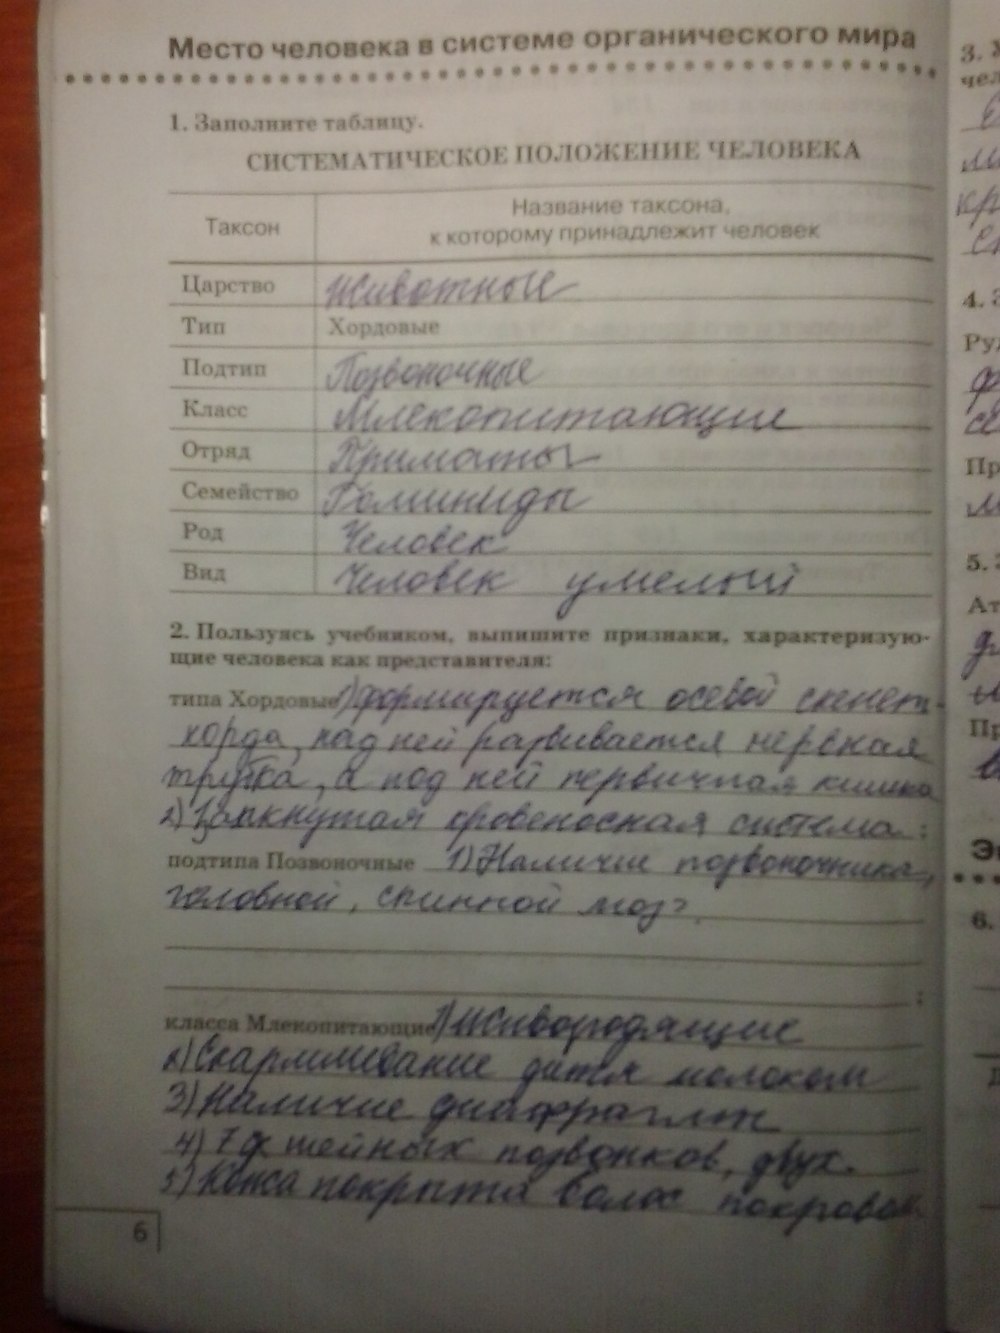 Место человека в системе органического мира
1. Заполните таблицу.
СИСТЕМАТИЧЕСКОЕ ПОЛОЖЕНИЕ ЧЕЛОВЕКА
Таксон
Название таксона,
к которому принадлежит человек
Царство Животные
Тип Хордовые
Подтип Позвоночные
Класс Млекопитающие
Отряд Приматы
Семейство Гоминиды
Род Человек
Вид Человек умелый
2. Пользуясь учебником, выпишите признаки, характеризую-
щие человека как представителя:
типа Хордовые 1) формируется осевой скелет-
хорда, над ней развивается нервная
трубка, а под ней первичная кишка
2) Замкнутая кровеносная система. ;
подтипа Позвоночные 1) Наличие позвоночника,
головной, спинной мозг.
;
класса Млекопитающие 1) Живородящие
2) Скармливание дитя молоком
3) Наличие диафрагмы
4) 7 шейных позвонков, двух.
5) Кожа покрыта волос покровом
6
3.
чел
кр
4.
Ру
ф
се
Пр
5.
Ат
Пр
6.